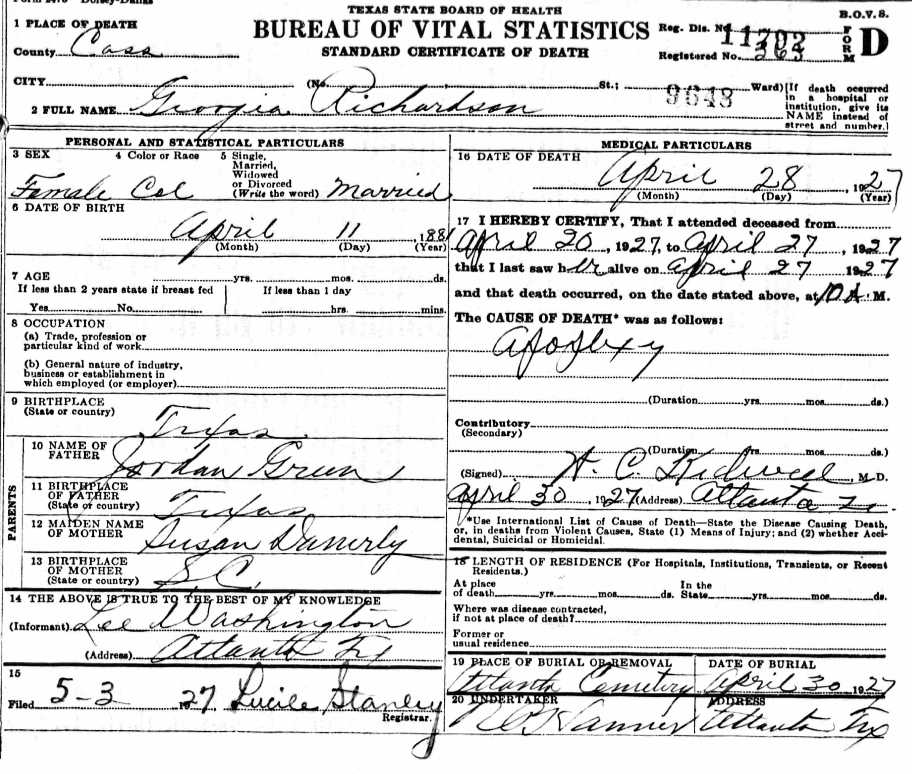 TEXAS STATE BOARD OF HEALTH
B.O.V.S.
1 PLACE OF DEATH
BUREAU OF VITAL STATISTICS
Reg. Dis. No. 11702
FORM D
County Cass
STANDARD CERTIFICATE OF DEATH
Registered No. 363
CITY (No. St.; Ward)
9643
[If death occurred in a hospital or institution, give its NAME instead of street and number.]
2 FULL NAME Georgia Richardson
PERSONAL AND STATISTICAL PARTICULARS
3 SEX
4 Color or Race
5 Single, Married, Widowed or Divorced (Write the word)
Female Col Married
6 DATE OF BIRTH
April 11 1881
(Month) (Day) (Year)
7 AGE yrs. mos. ds.
If less than 2 years state if breast fed
If less than 1 day
Yes No hrs. mins.
8 OCCUPATION
(a) Trade, profession or
particular kind of work
(b) General nature of industry,
business or establishment in
which employed (or employer)
9 BIRTHPLACE
(State or country) Texas
PARENTS
10 NAME OF
FATHER Jordan Green
11 BIRTHPLACE
OF FATHER
(State or country) Texas
12 MAIDEN NAME
OF MOTHER Susan
13 BIRTHPLACE
OF MOTHER
(State or country) S.C.
14 THE ABOVE IS TRUE TO THE BEST OF MY KNOWLEDGE
(Informant) Lee Washington
(Address) Atlanta Tex
15
Filed 5-3 1927 Lucile Stanley
Registrar.
MEDICAL PARTICULARS
16 DATE OF DEATH
April 28, 1927
(Month) (Day) (Year)
17 I HEREBY CERTIFY, That I attended deceased from
April 20, 1927, to April 27 1927
that I last saw her alive on April 27 1927
and that death occurred, on the date stated above, at 10 A.M.
The CAUSE OF DEATH* was as follows:
Apoplexy
(Duration yrs. mos. ds.)
Contributory
(Secondary)
(Duration yrs. mos. ds.)
(Signed) H. C. Kidwell, M.D.
April 30, 1927 (Address) Atlanta
*Use International List of Cause of Death—State the Disease Causing Death,
or, in deaths from Violent Causes, State (1) Means of Injury; and (2) whether Acci-
dental, Suicidal or Homicidal.
18 LENGTH OF RESIDENCE (For Hospitals, Institutions, Transients, or Recent
Residents.)
At place of death yrs. mos. ds. In the State yrs. mos. ds.
Where was disease contracted,
if not at place of death?
Former or
usual residence
19 PLACE OF BURIAL OR REMOVAL
DATE OF BURIAL
Atlanta Cemetery April 30 1927
20 UNDERTAKER
ADDRESS
Hanner Atlanta Tex